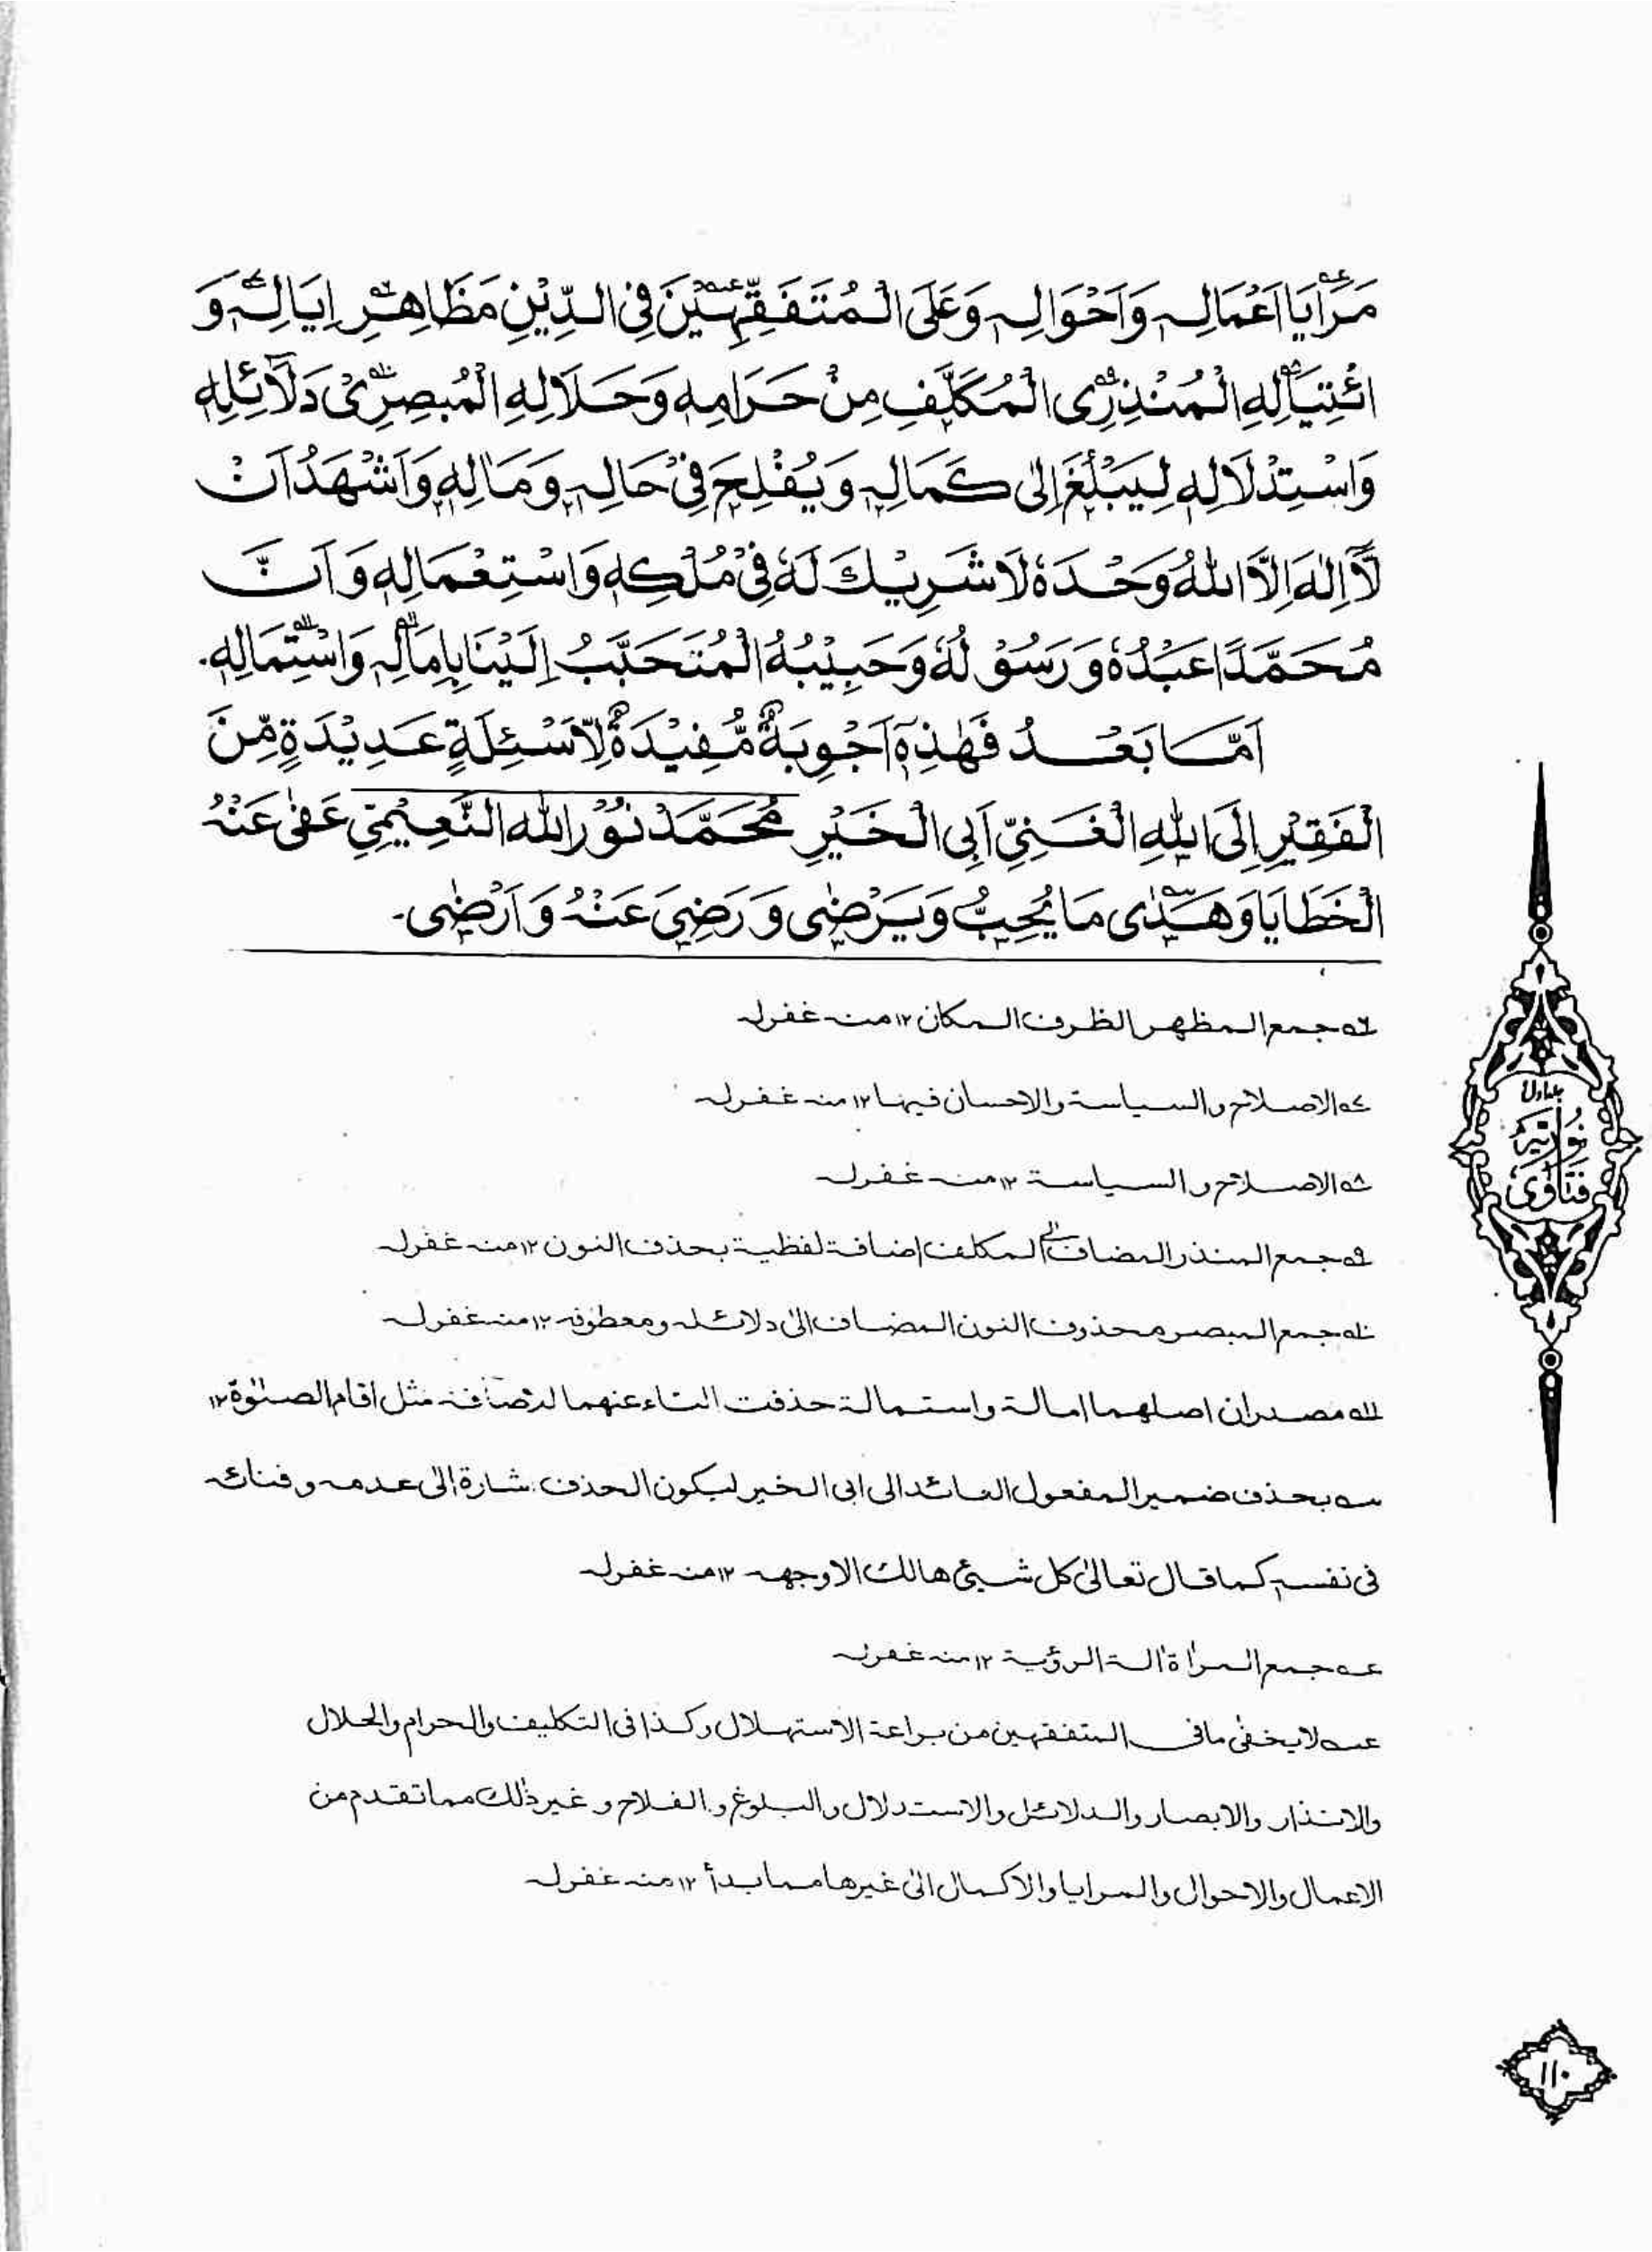 مَرَايَا اَعْمَالِهٖ وَاَحْوَالِهٖ وَعَلَى الْمُتَفَقِّهِيْنَ فِي الدِّيْنِ مَظَاهِرِ اِيَالِهٖ وَ
ائْتِيَالِهِ الْمُنْذِرِى الْمُكَلَّفِ مِنْ حَرَامِهٖ وَحَلَالِهِ الْمُبْصِرِىْ دَلَآئِلِهٖ
وَاسْتِدْلَالِهٖ لِيَبْلُغَ اِلٰى كَمَالِهٖ وَيُفْلِحَ فِيْ حَالِهٖ وَمَاٰلِهٖ وَاَشْهَدُ اَنْ
لَّآ اِلٰهَ اِلَّا اللّٰهُ وَحْدَهٗ لَا شَرِيْكَ لَهٗ فِيْ مُلْكِهٖ وَاسْتِعْمَالِهٖ وَاَنَّ
مُحَمَّدًا عَبْدُهٗ وَرَسُوْلُهٗ وَحَبِيْبُهُ الْمُتَحَبَّبُ اِلَيْنَا بِاِمَالِهٖ وَاسْتِمَالِهٖ۔
اَمَّا بَعْدُ فَهٰذِهٖ اَجْوِبَةٌ مُّفِيْدَةٌ لِّاَسْئِلَةٍ عَدِيْدَةٍ مِّنَ
الْفَقِيْرِ اِلَى اللّٰهِ الْغَنِيِّ اَبِى الْخَيْرِ مُحَمَّدْ نُوْرُ اللّٰه النَّعِيْمِيّ عَفٰى عَنْهُ
الْخَطَايَا وَهَدٰى مَا يُحِبُّ وَيَرْضٰى وَرَضِيَ عَنْهُ وَاَرْضٰى۔
جلد اول
نُورِيَّه
فتَاوٰى
٦ه جمع المظهر الظرف المكان ١٢ منه غفرله
٧ه الاصلاح والسياسة والاحسان فيها ١٢ منه غفرله
٨ه الاصلاح والسياسة ١٢ منه غفرله
٩ه جمع المنذر المضاف الى المكلف اضافة لفظية بحذف النون ١٢ منه غفرله
١٠ه جمع المبصر محذوف النون المضاف الى دلائله ومعطوفه ١٢ منه غفرله
١١ه مصدران اصلهما امالة واستمالة حذفت التاء عنهما للاضافة مثل اقام الصلٰوة ١٢
سه بحذف ضمير المفعول العائد الى ابى الخير ليكون الحذف شارة الى عدمه وفنائه
فى نفسه كما قال تعالىٰ كل شيئ هالك الا وجهه ١٢ منه غفرله
عه جمع المراٰة اٰلة الرؤية ١٢ منه غفرله
عه لا يخفٰى ما فى المتفقهين من براعة الاستهلال وكذا فى التكليف والحرام والحلال
والانذار والابصار والدلائل والاستدلال والبلوغ والفلاح وغير ذٰلك مما تقدم من
الاعمال والاحوال والمرايا والاكمال الى غيرها مما بدأ ١٢ منه غفرله
١١٠